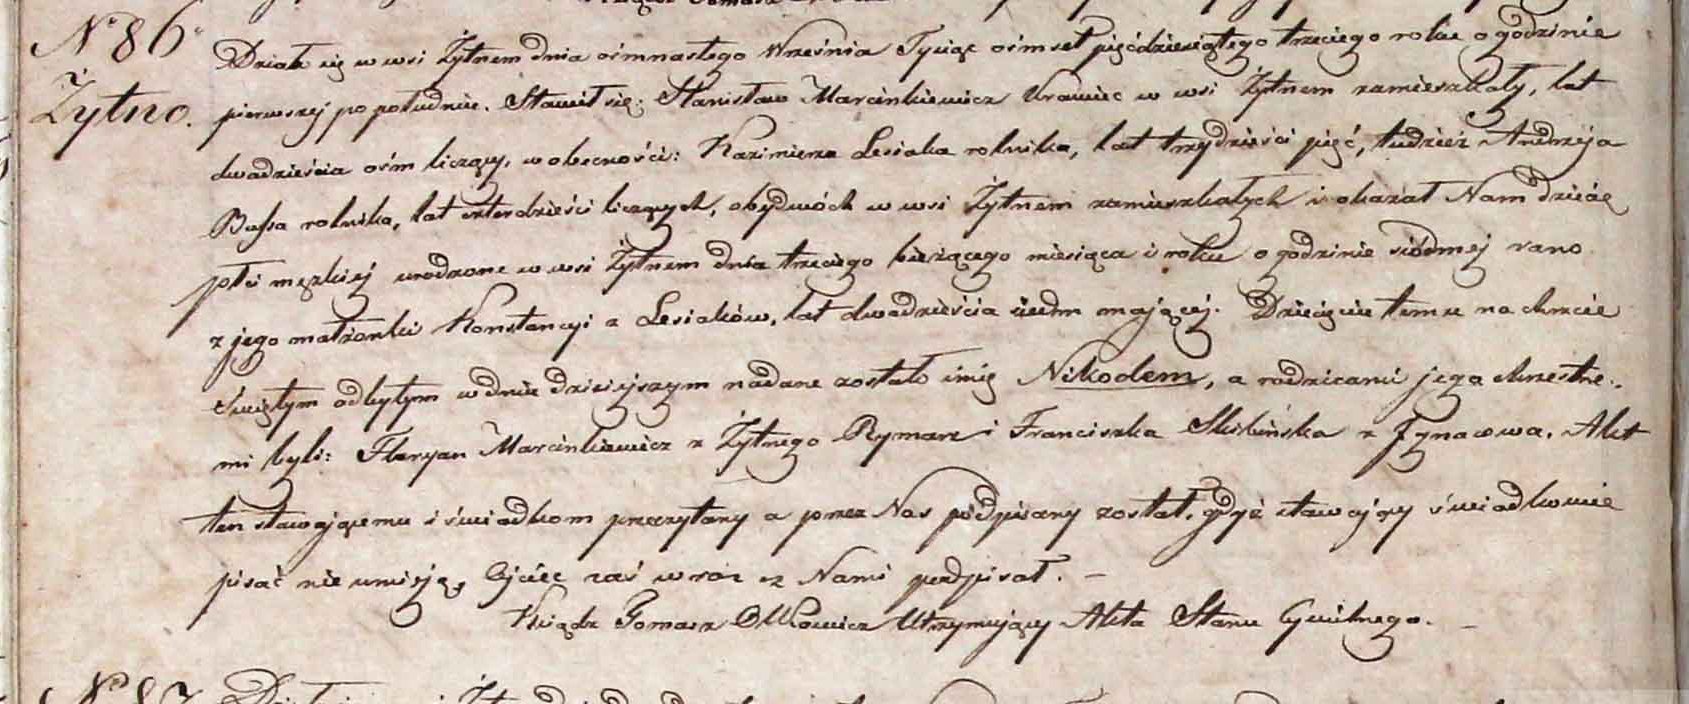 N° 86
Żytno.
Działo się w wsi Żytnem dnia ośmnastego Września Tysiąc ośmset pięćdziesiątego trzeciego roku o godzinie
pierwszej po południu. Stawił się: Stanisław Marcinkiewicz Krawiec w wsi Żytnem zamieszkały, lat
dwadzieścia ośm liczący, w obecności: Kazimierza Lesiaka rolnika, lat trzydzieści pięć, tudzież Andrzeja
Bassa rolnika, lat czterdzieści liczących, obydwóch w wsi Żytnem zamieszkałych i okazał Nam dziecię
płci męzkiej urodzone w wsi Żytnem dnia trzeciego bieżącego miesiąca i roku o godzinie siódmej rano
z jego małżonki Konstancyi z Lesiaków, lat dwadzieścia siedm mającej. Dziecięciu temu na chrzcie
świętym odbytym w dniu dzisiejszym nadane zostało imię Nikodem, a rodzicami jego chrzestne-
mi byli: Floryan Marcinkiewicz z Żytnego Rymarz i Franciszka Skibińska z. Akt
ten stawającemu i świadkom przeczytany a przez Nas podpisany został, gdyż stawający świadkowie
pisać nie umieją, Ojciec zaś wraz z Nami podpisał. —
Ksiądz Tomasz Utrzymujący Akta Stanu Cywilnego. —